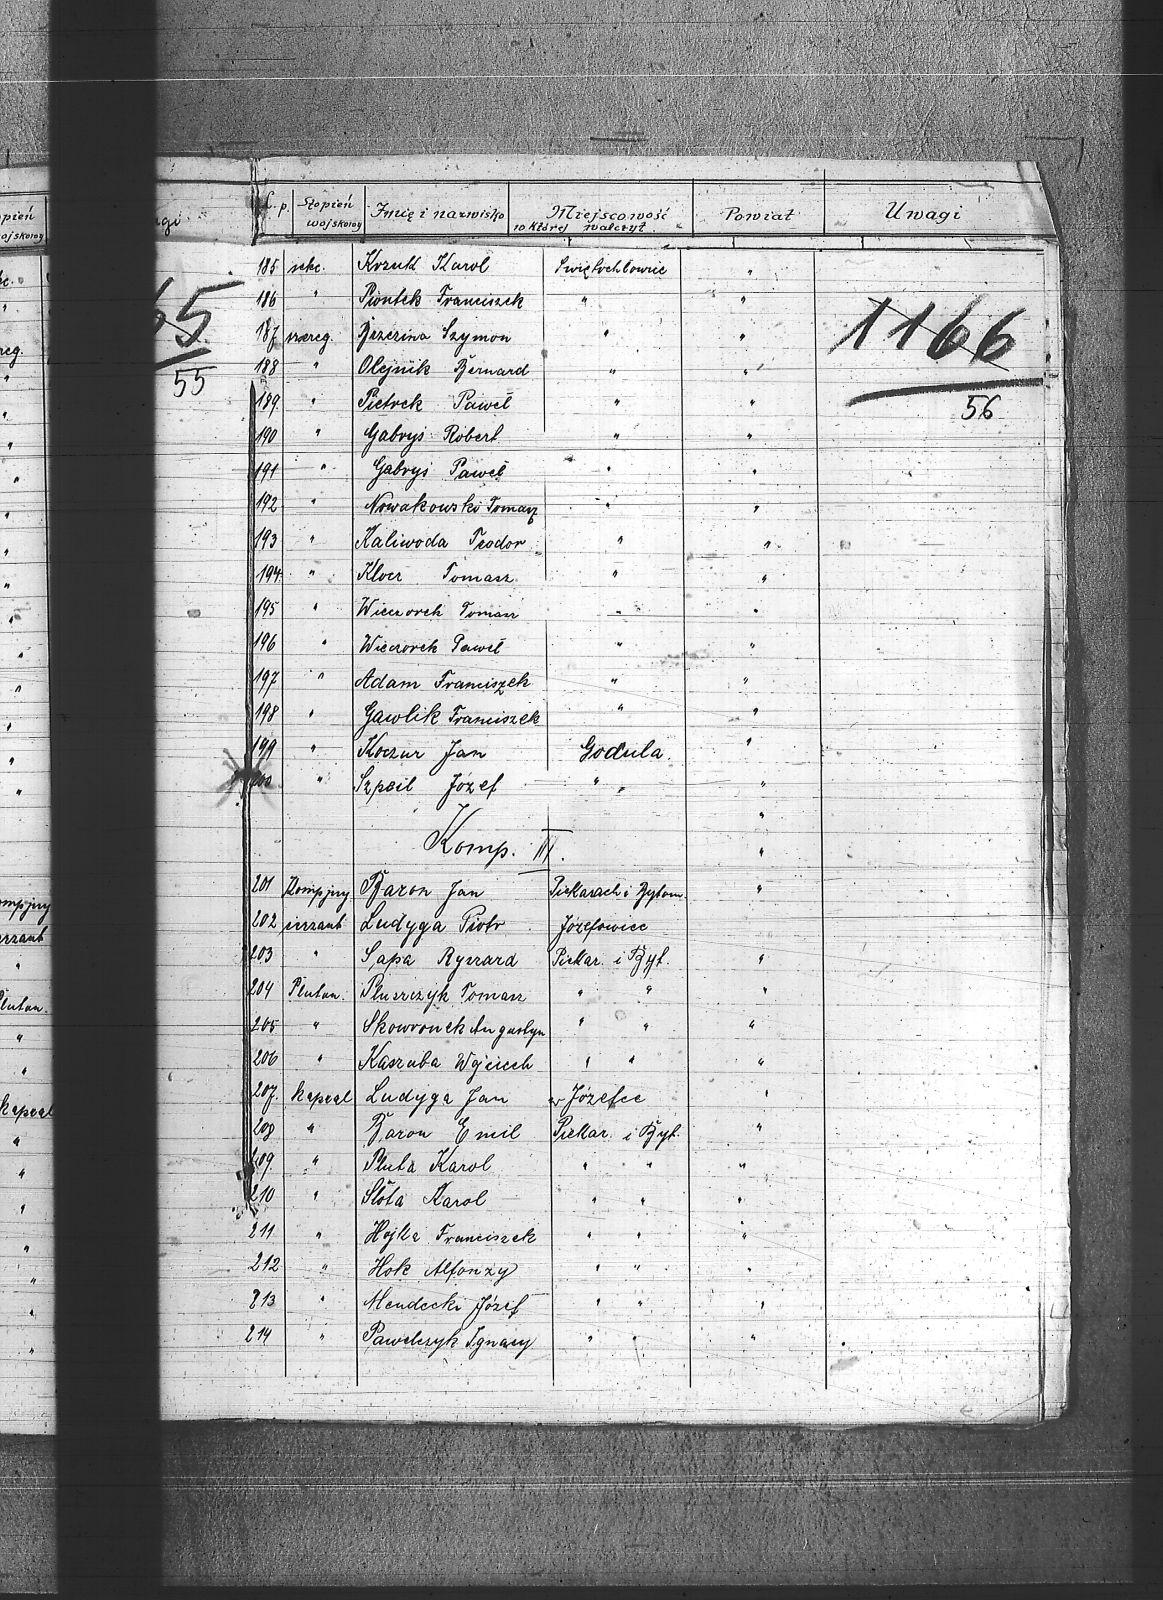 L. p. Stopień wojskowy Imię i nazwisko Miejscowość w której walczył Powiat Uwagi
185 sekc. Karol Świętochłowice "
186 " Piontek Franciszek " "
187 szereg. Brzezina Szymon " "
188 " Olejnik Bernard " "
189 " Pietrek Paweł " "
190 " Gabryś Robert " "
191 " Gabryś Paweł " "
192 " Nowakowski Tomasz " "
193 " Kaliwoda Teodor " "
194 " Klocz Tomasz " "
195 " Wieczorek Tomasz " "
196 " Wieczorek Paweł " "
197 " Adam Franciszek " "
198 " Gawlik Franciszek " "
199 " Koczur Jan Godula "
200 " Szpeil Józef " "
Komp. III.
201 Kompjny Baron Jan Piekarach i Bytom "
202 sierzant Ludyga Piotr Józefowiec
203 " Sapa Ryszard Piekar. i Byt. "
204 Pluton. Pluszczyk Tomasz " " "
205 " Skowronek Augustyn " " "
206 " Kaszuba Wojciech " " "
207. kapral Ludyga Jan w Józefce "
208 " Baron Emil Piekar. i Byt. "
209 " Pluta Karol " " "
210 " Słota Karol " " "
211 " Hojka Franciszek " " "
212 " Hok Alfonzy " " "
213 " Mendecki Józef " " "
214 " Pawelczyk Ignacy " " "
1166
56
55